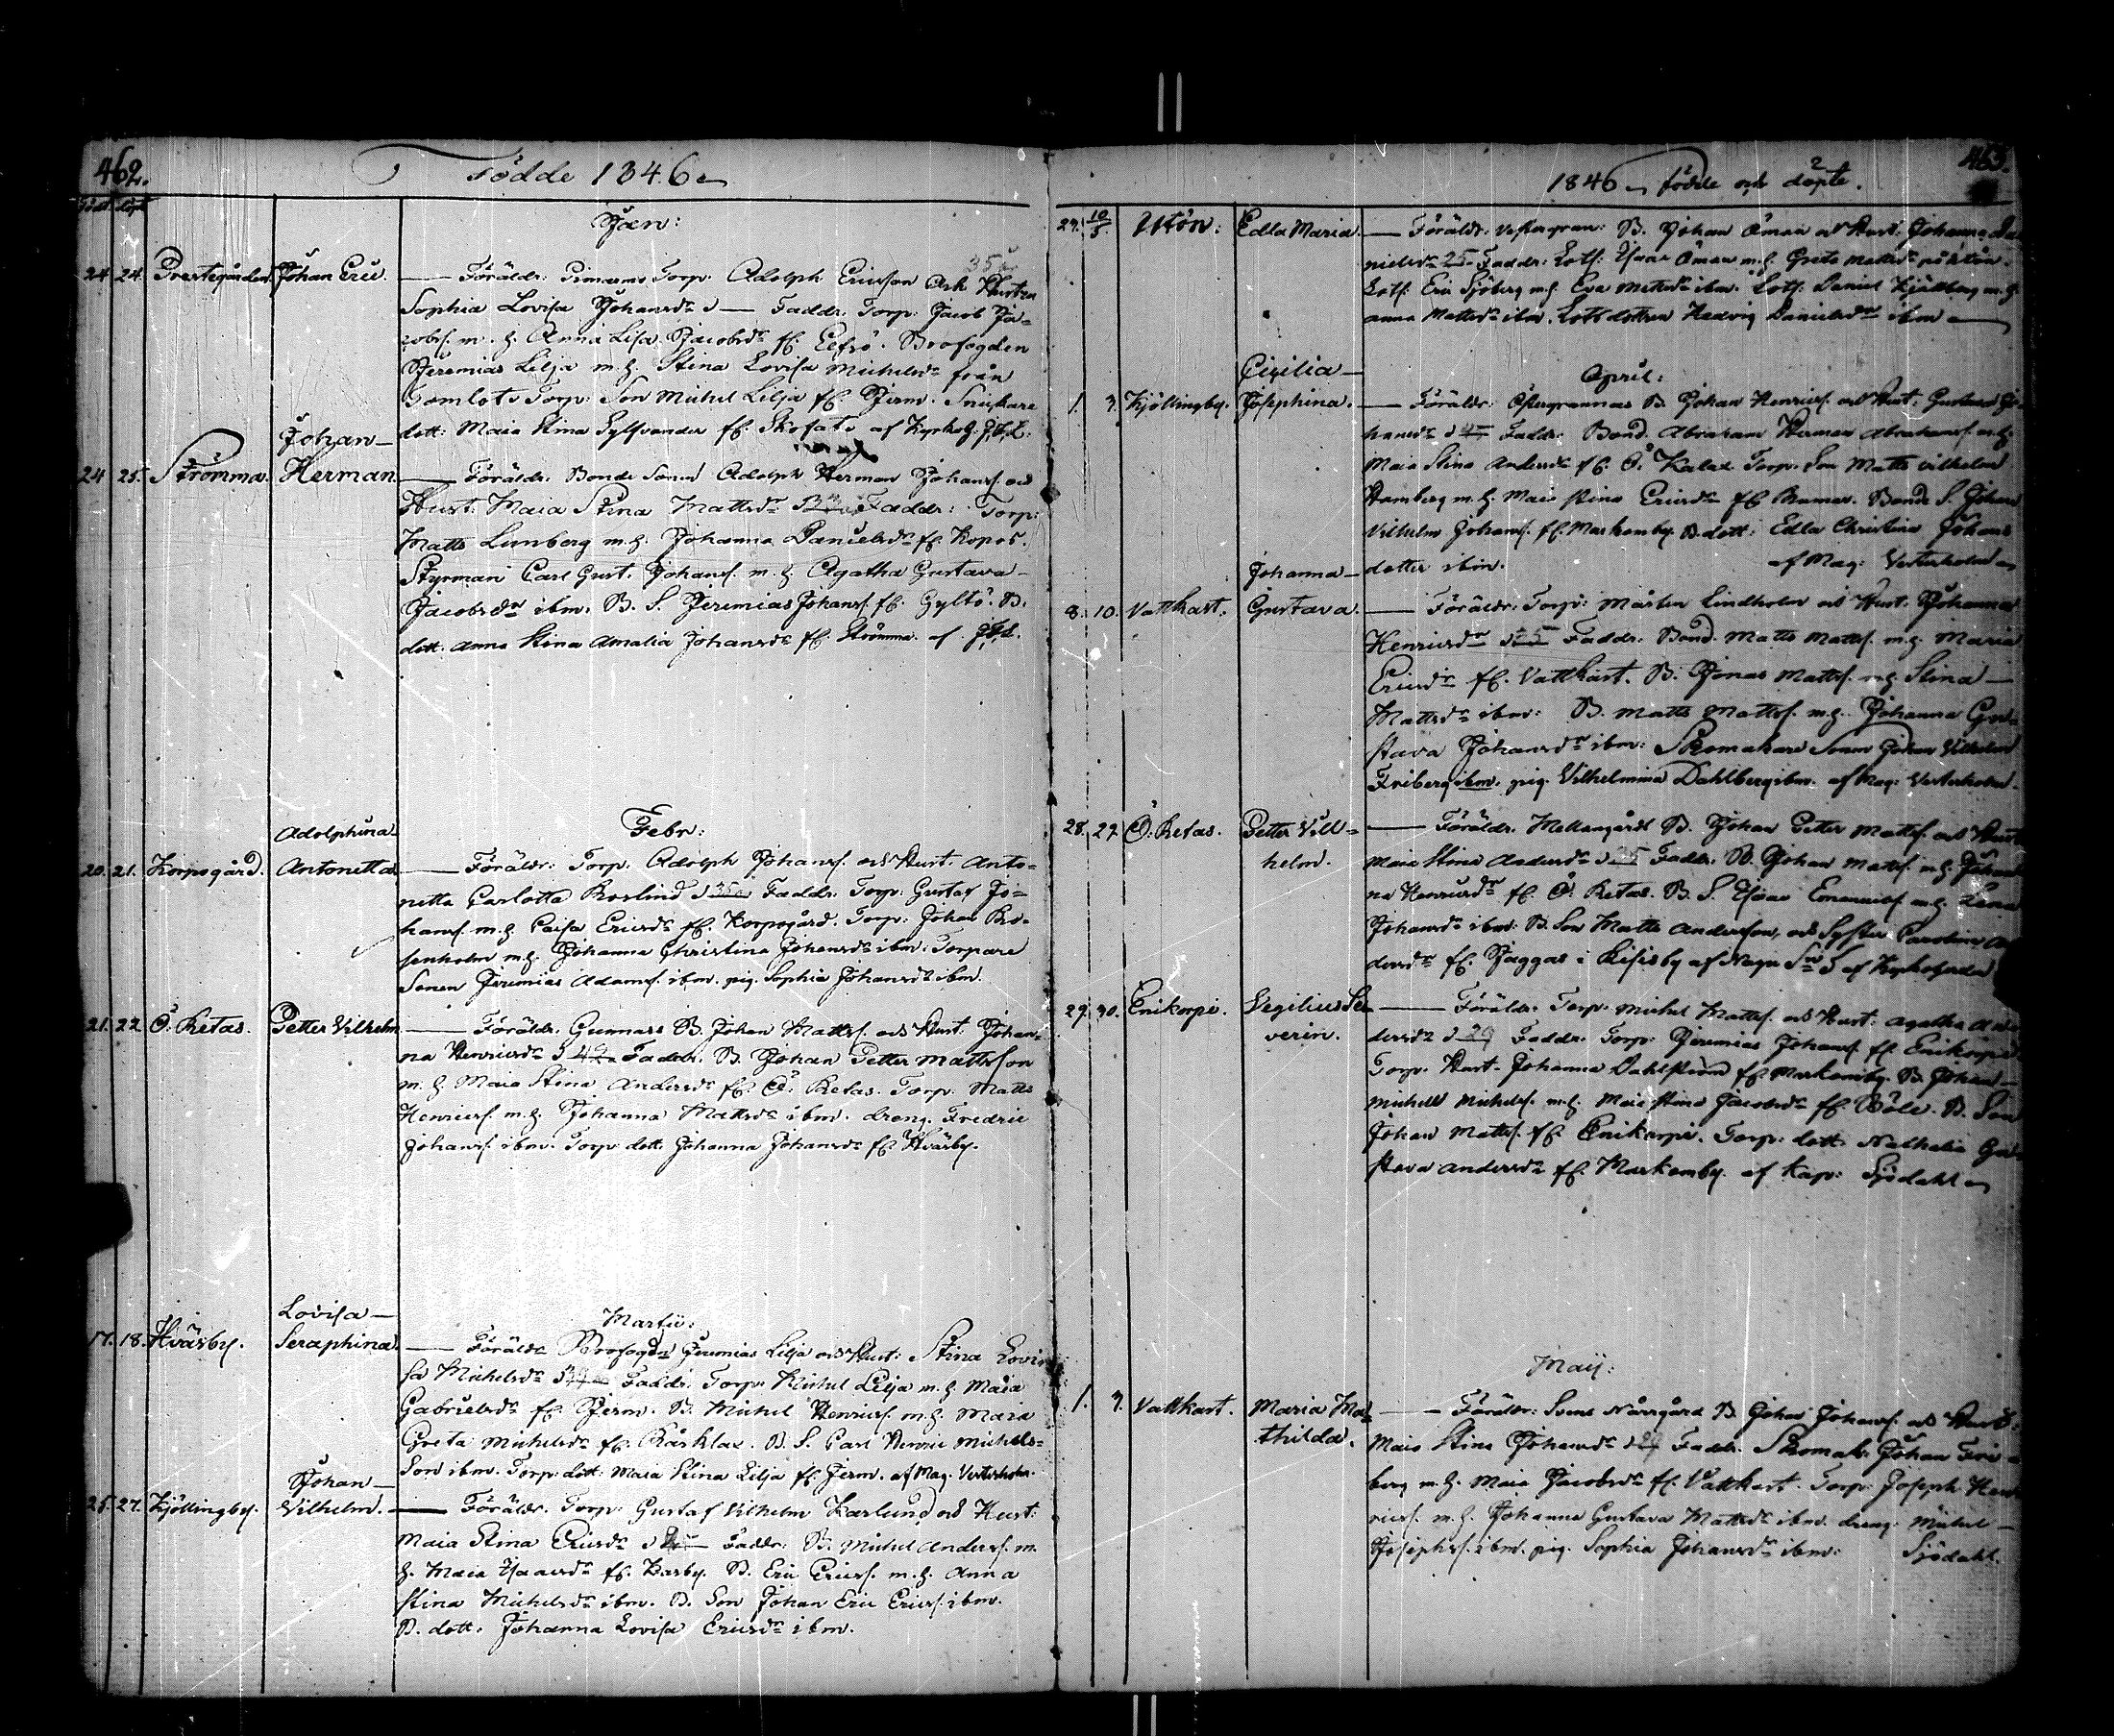 462.
Födde 1846
Född döpt
Jan:
24. 24. Prestegården Johan Eric. — Föräldr: Torp: Adolph Ericsson och Hustru 35
Sophia Lovisa Johansdr — Faddr. Torp: Jacob Ja-
cobss. m. h. Anna Lisa Jacobsdr fr. Brofogden
Jeremias Lilja m.h. Stina Lovisa Michelsdr från
Tomlot Torp: Son Michel Lilja fr. Jerm. Snickare
dott: Maia Stina fr. Skofate af
24 25. Strömma. Johan—
Herman. — Föräldr. Bonde Sonen Adolph Herman Johanss. och
Hust. Maia Stina Mattsdr Faddr: Torp:
Matts Lunberg m.h. Johanna Danielsdr fr. Kopos.
Styrman Carl Gust. Johanss. m.h. Agatha Gustava
Jacobsdr ibm. B. S. Jeremias Johanss. fr. Gyltö. B.
dott. Anna Stina Amalia Johansdr fr. Strömma. af
Febr:
20. 21. Korpogård. Adolphina
Antonetta — Föräldr: Torp. Adolph Johanss. och Hust. Anto-
netta Carlotta Roslind 35 Faddr. Torp: Gustaf Jo-
hanss. m.h. Caisa Ericsdr fr. Korpogård. Torp: Johan Ro-
senholm m.h. Johanna Christina Johansdr ibm. Torpare
Sonen Jeremias Adamss. ibm. pig. Sophia Johansdr ibm.
21. 22. Ö. Retas. Petter Vilhelm — Föräldr. Gunnars B. Johan Mattss. och Hust. Johan-
na Henricsdr 42 Faddr. B. Johan Petter Mattsson
m.h. Maia Stina Andersdr fr. Ö. Retas. Torp. Matts
Henricss. m.h. Johanna Mattsdr ibm. dreng. Fredric
Johanss. ibm. Torp dott. Johanna Johansdr fr. Hväsby.
Martii:
17. 18. Hväsby. Lovisa —
Seraphina — Föräldr Brofogden Jeremias Lilja och Hust: Stina Lovi-
sa Michelsdr Faddr. Torp. Michel Lilja m.h. Maia
Gabrielsdr fr. Jerm. B. Michel Henricss. m.h. Maia
Greta Michelsdr fr. Rårklax. B. S. Carl Henric Michels-
Son ibm. Torp: dott: Maia Stina Lilja fr. Jerm. af Mag. Vesterholm.
25. 27. Kjöllingby. Johan —
Vilhelm. — Föräldr. Torp: Gustaf Vilhelm Karlund och Hust:
Maia Stina Ericsdr Faddr: B. Michel Anderss. m.
h. Maia Isaacsdr fr. B. Eric Ericss. m.h. Anna
Stina Michelsdr ibm. B. Son Johan Eric Ericss. ibm.
B. dott. Johanna Lovisa Ericsdr ibm.
463.
1846 födde och döpte.
29. 10/5. Utön: Edla Maria. — Föräldr. Vestergran: B. Johan Öman och Hust. Johanna Da-
nielsdr 25 Faddr: Lots. Isaac Öman m.h. Greta Mattsdr på Utön.
Lots. Eric Sjöberg m.h. Eva Mattsdr ibm. Lots. Daniel Kjällberg m.h.
Anna Mattsdr ibm. Lotsdottren Hedvig Danielsdr ibm
April:
1. 3. Kjöllingby. Cicilia —
Josephina. — Föräldr: Östergrannas B. Johan Henricss. och Hust. Gustava Jo-
hansdr Faddr. Bond. Abraham Herman Abrahamss. m.h.
Maia Stina Andersdr fr. Ö. Kalax Torp: Son Matts Vilhelm
Hamberg m.h. Maia Stina Ericsdr fr. Bonde S. Johan
Vilhelm Johanss. fr. Markomby. B. dott: Edla Christina Johans
dotter ibm. af Mag: Vesterholm
8. 10. Vattkast. Johanna —
Gustava. — Föräldr. Torp: Mårten Lindholm och Hust. Johanna
Henricsdr Faddr. Bond. Matts Mattss. m.h. Maria
Ericsdr fr. Vattkast. B. Jonas Mattss. m.h. Stina —
Mattsdr ibm: B. Matts Mattss. m.h. Johanna Gu-
stava Johansdr ibm: Skomakare Sonen Johan Vilhelm
Friberg ibm. pig. Vilhelmina Dahlberg ibm. af Mag: Vesterholm.
28. 29. Ö. Retas. Petter Vill-
helm. — Föräldr. Mellangårds B. Johan Petter Mattss. och Hust
Maia Stina Andersdr Faddr. B. Johan Mattss. m.h. Johan-
na Henricsdr fr. Ö. Retas. B. S. Isaac Emanuelss. m.h. Lena
Johansdr ibm: B. Son Matts Andersson, och Syster Carolina An-
dersdr fr. Jaggas i Risisby af
29. 30. Enikorpi. Vegilius Se-
verin. — Föräldr. Torp: Michel Mattss. och Hust: Agatha An-
dersdr 29 Faddr. Torp: Jeremias Johanss. fr. Enikorpi
Torp. Hust. Johanna Dahlström fr. Markomby. B. Johan —
Michels Michelss. m.h. Maia Stina Jacobsdr fr. Böle. B. Son
Johan Mattss. fr. Enikorpi. Torp: dott: Nathalia Gu-
stava Andersdr fr. Markomby. af Kap: Sjödahl
Maij:
1. 3. Vattkast. Maria Ma-
thilda. — Föräldr: Svens Norrgård B. Johan Johanss. och Hust.
Maia Stina Johansdr Faddr. Skomak. Johan Fri-
berg m.h. Maia Jacobsdr fr. Vattkast. Torp: Joseph Hen-
ricss. m.h. Johanna Gustava Mattsdr ibm. dreng. Michel —
Josephss. ibm. pig. Sophia Johansdr ibm: Sjödahl.